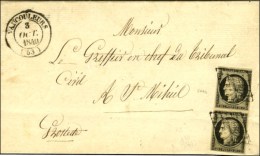 VAUCOULEURS
3
OCT.
1849
(53)
Monsieur
Le Greffier en chef du tribunal
Civil
A St Mihiel